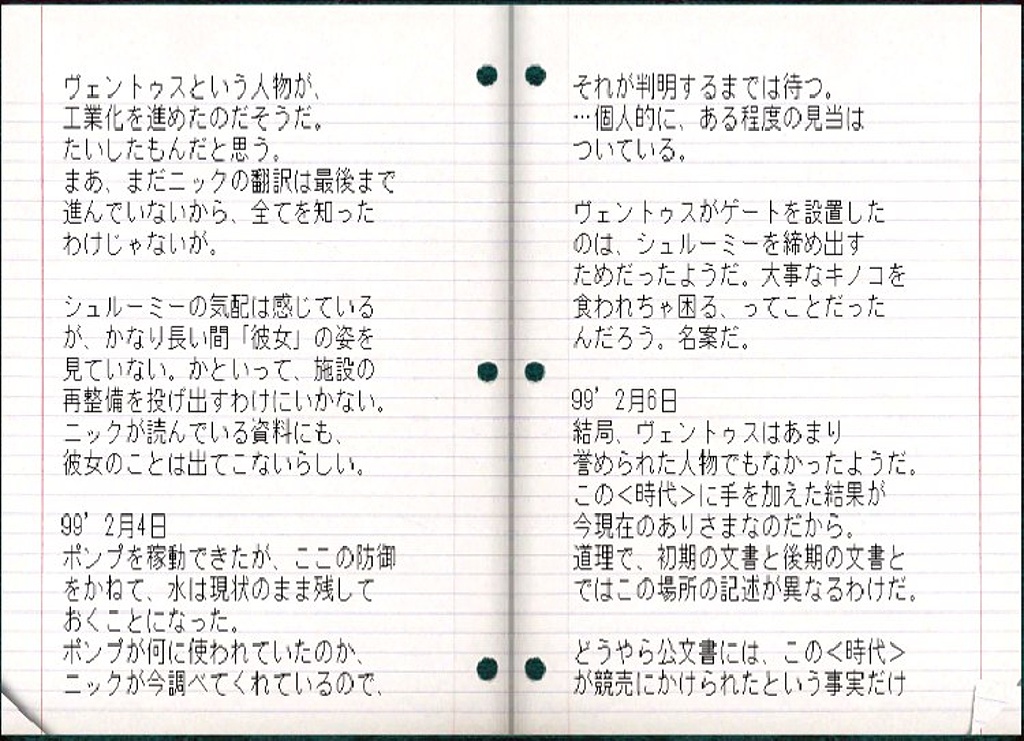 ヴェントゥスという人物が、
工業化を進めたのだそうだ。
たいしたもんだと思う。
まあ、まだニックの翻訳は最後まで
進んでいないから、全てを知った
わけじゃないが。
シュルーミーの気配は感じている
が、かなり長い間「彼女」の姿を
見ていない。かといって、施設の
再整備を投げ出すわけにいかない。
ニックが読んでいる資料にも、
彼女のことは出てこないらしい。
99’2月4日
ポンプを稼動できたが、ここの防御
をかねて、水は現状のまま残して
おくことになった。
ポンプが何に使われていたのか、
ニックが今調べてくれているので、
それが判明するまでは待つ。
…個人的に、ある程度の見当は
ついている。
ヴェントゥスがゲートを設置した
のは、シュルーミーを締め出す
ためだったようだ。大事なキノコを
食われちゃ困る、ってことだった
んだろう。名案だ。
99’2月6日
結局、ヴェントゥスはあまり
誉められた人物でもなかったようだ。
この<時代>に手を加えた結果が
今現在のありさまなのだから。
道理で、初期の文書と後期の文書と
ではこの場所の記述が異なるわけだ。
どうやら公文書には、この<時代>
が競売にかけられたという事実だけ